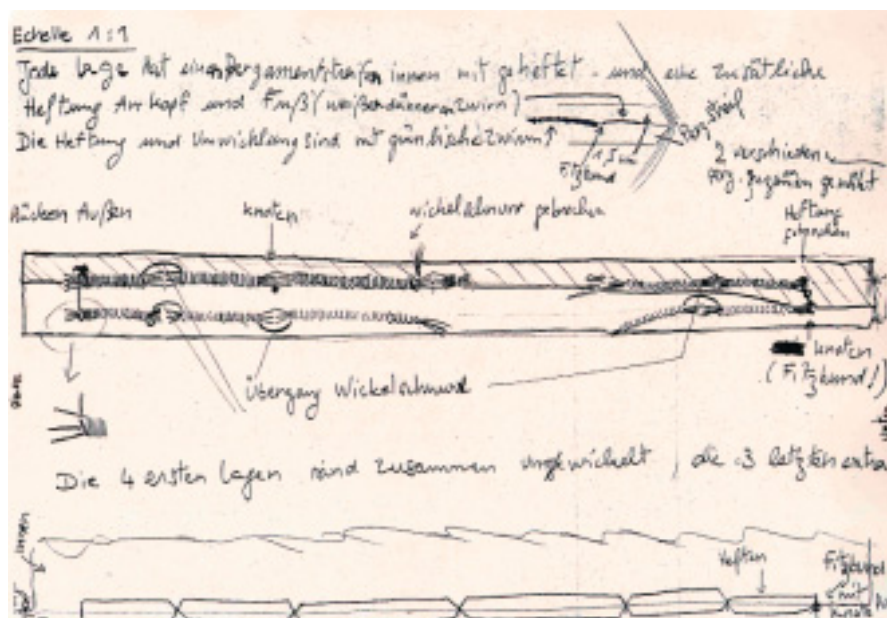 Echelle 1:1
Jede Lage hat einen Pergamentstreifen innen mit geheftet - und eine zusätliche
Heftung Am Kopf und Fuß (weißer dünneren zwirn)
Die Heftung und Umwicklung sind mit zwirn
1,5 cm
Fitzbund
2 verschiedene
genäht
Rücken Außen
Knoten
wickelschnurr gebrochen
Heftung
gebrochen
Knoten
(Fitzbund!)
Übergang Wickelschnurr
Die 4 ersten Lagen sind zusammen umgewickelt, die 3 letzten extra
innen
Heften
Fitzbund
mit